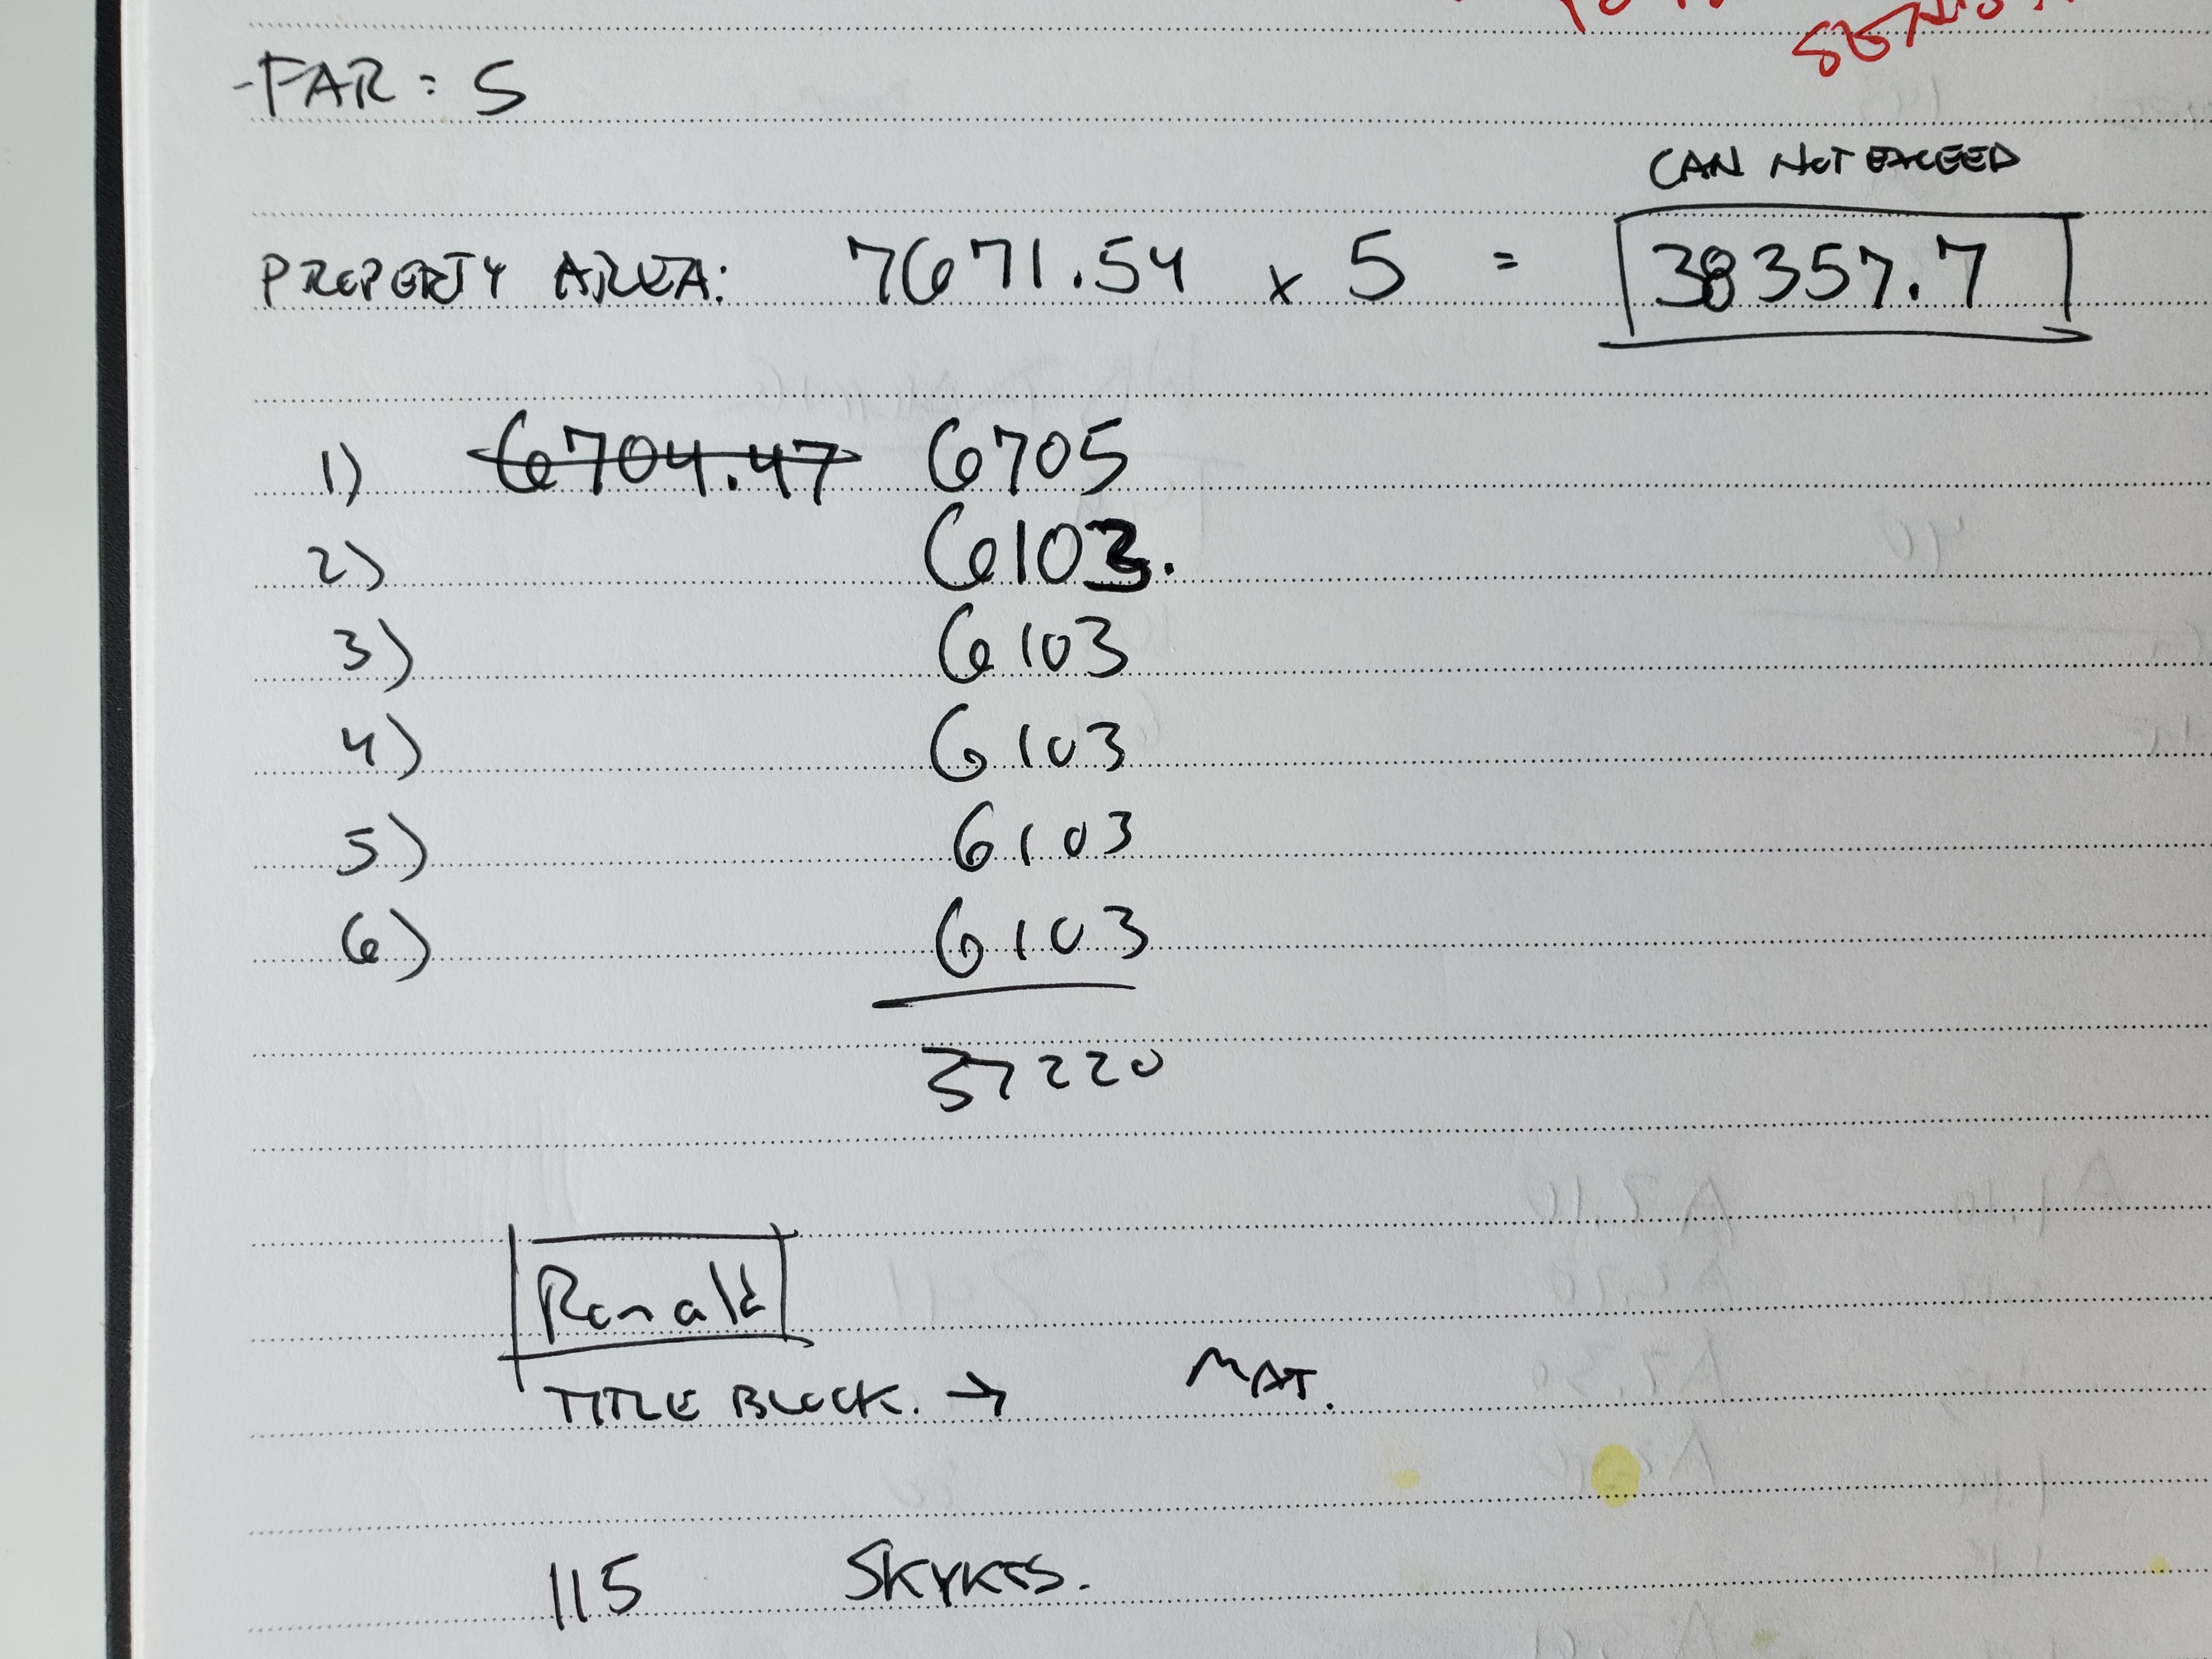 -FAR: 5
CAN NOT EXCEED
PROPERTY AREA: 7671.54 x 5 = 38357.7
1) 6704.47 6705
2) 6103.
3) 6103
4) 6103
5) 6103
6) 6103
37220
Ronald
TITLE BLOCK. → MAT.
115